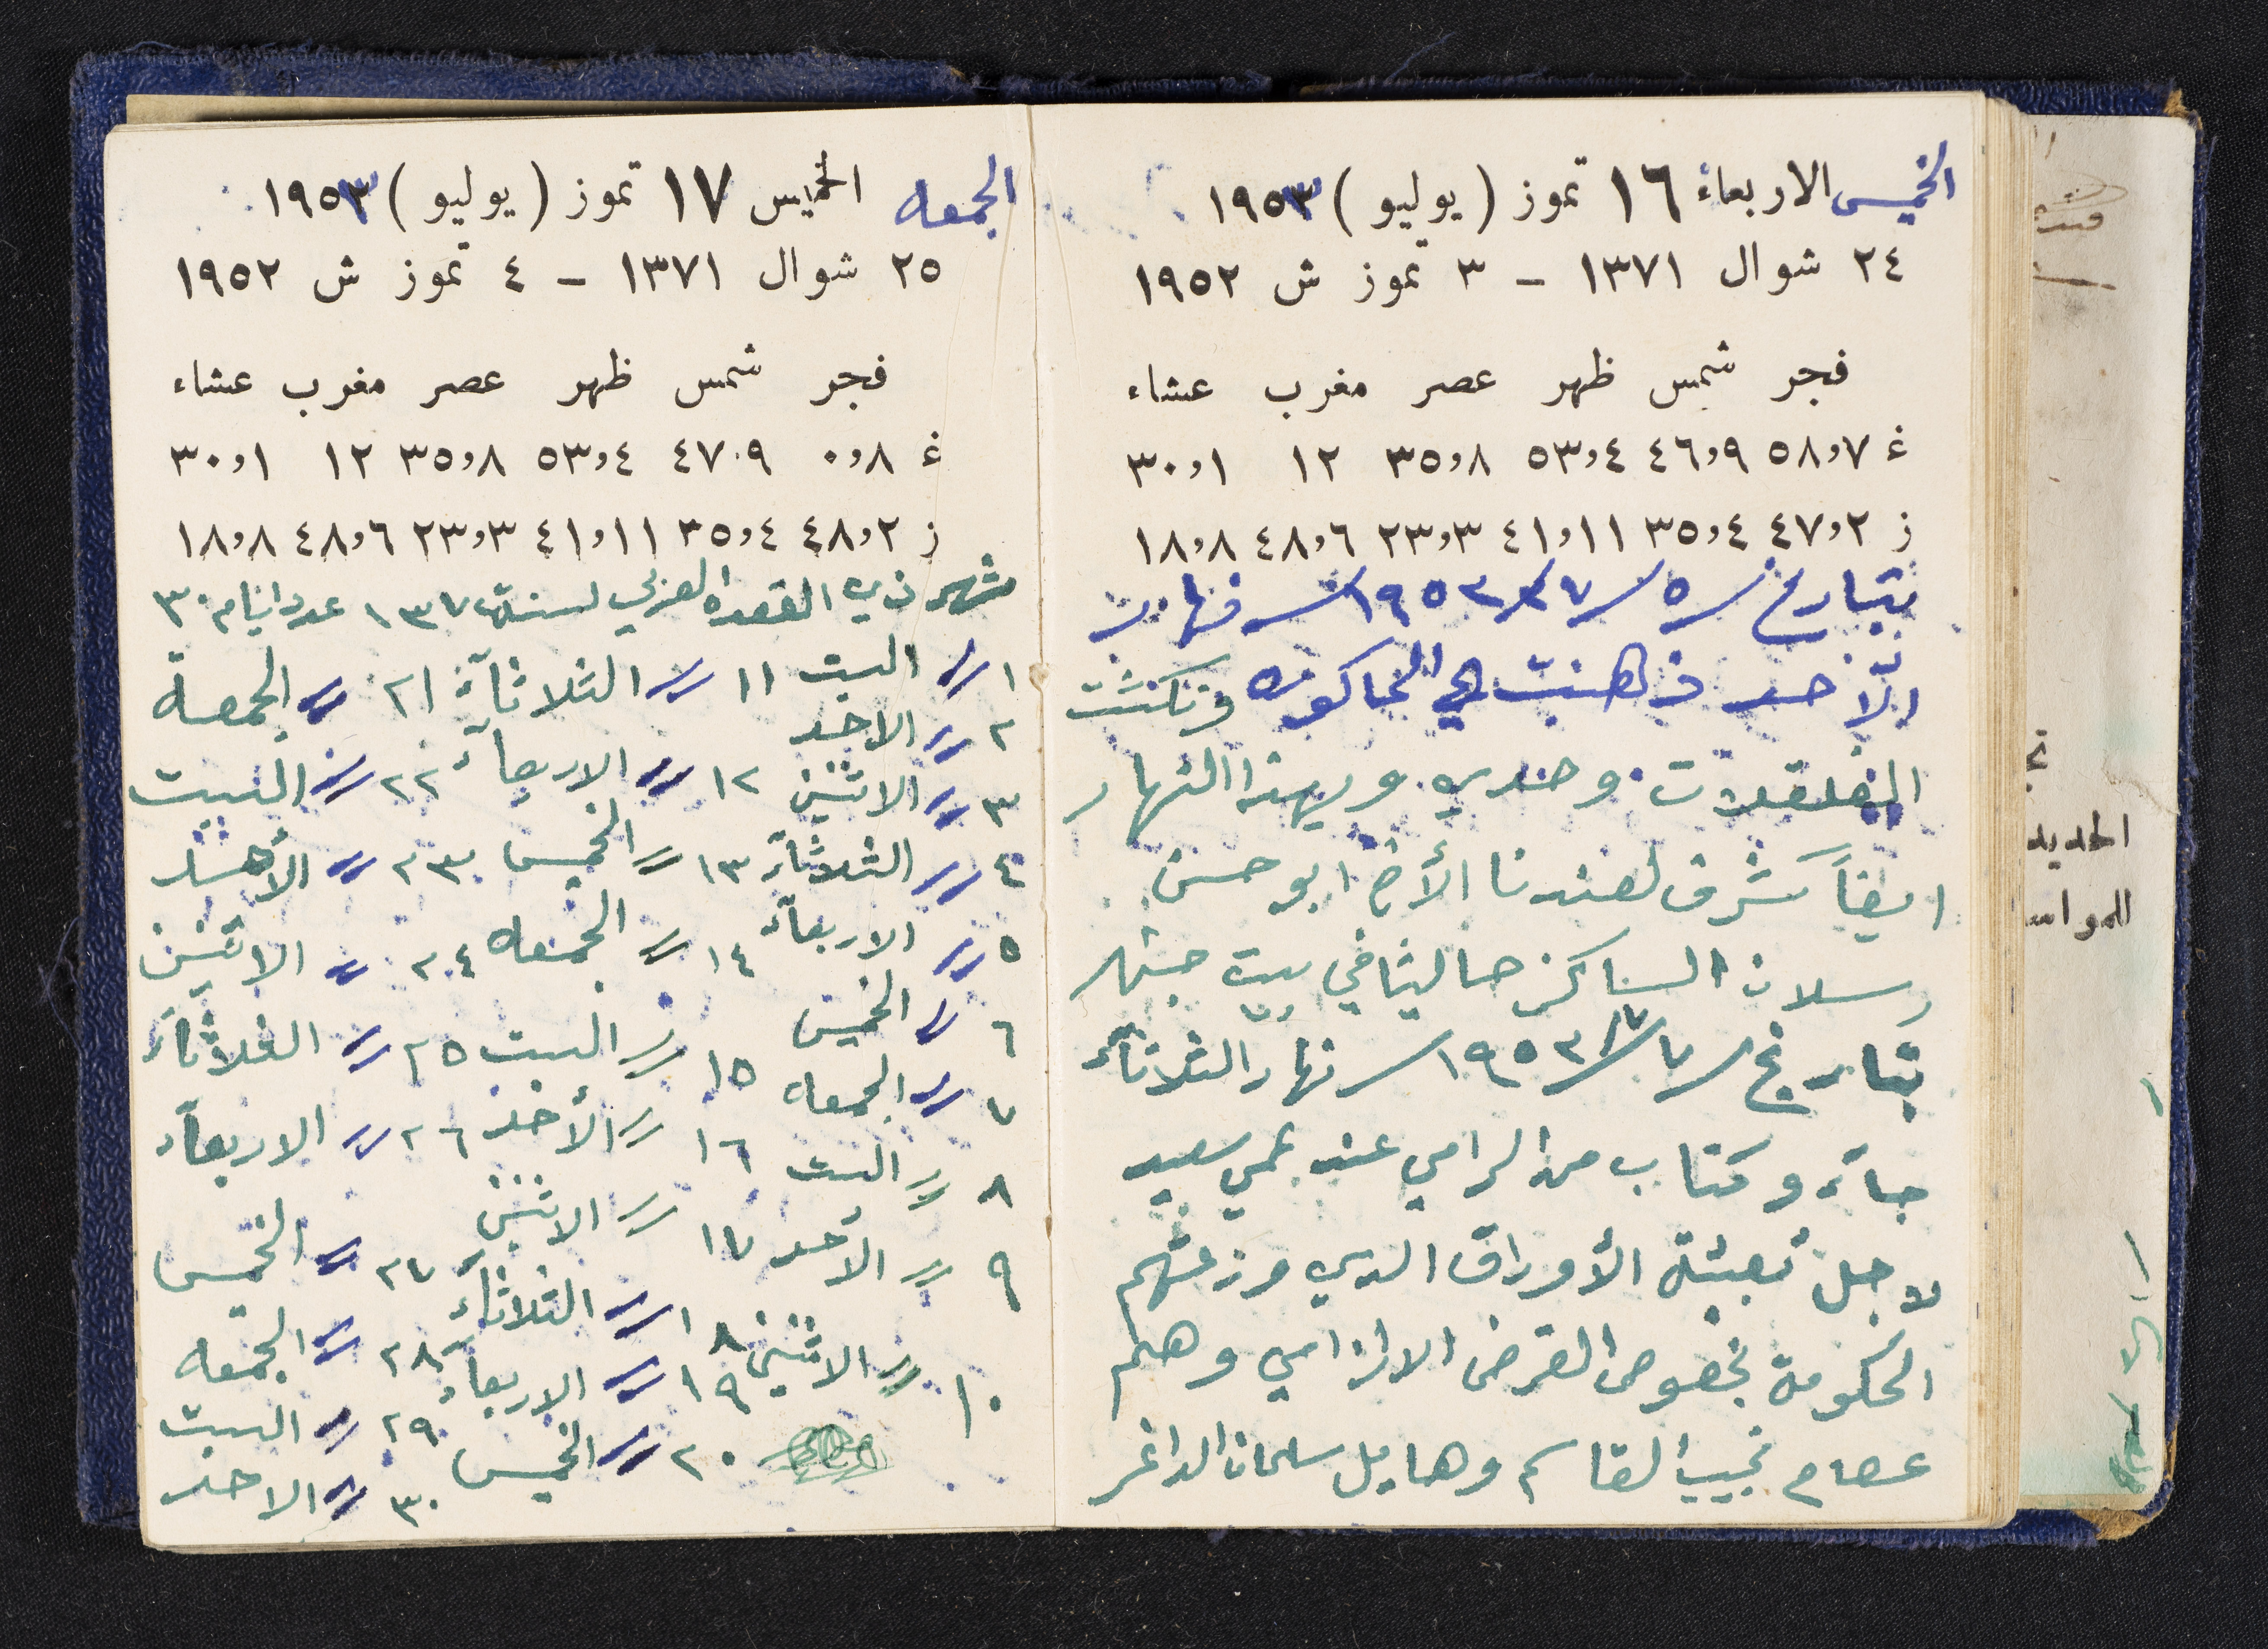 الخميس الاربعاء ١٦ تموز (يوليو) ١٩٥٣
٢٤ شوال ١٣٧١ – ٣ تموز ش ١٩٥٢
فجر شمس ظهر عصر مغرب عشاء
غ ٥٨،٧ ٤٦،٩ ٥٣،٤ ٣٥،٨ ١٢ ٣٠،١
ز ٤٧،٢ ٣٥،٤ ٤١،١١ ٢٣،٣ ٤٨،٦ ١٨،٨
بتاريخ ٥/٧/١٩٥٣ نهار
الأحد ذهبت الى الحاكوره ونكشت
الفلقلات وحدي وبهذا النهار
ايضاً شرف لعندنا الأخ ابو حسن
رسلان الساكن حاليا في بيت جبنهر
بتاريخ ٧/٧/١٩٥٣ نهار الثلاثاء
جاء وكتاب من الرامي عند عمي سعيد
لاجل تعبئة الأوراق الذي وزعتهم
الحكومة بخصوص القرض الالزامي وهم
عصام نجيب القاسم وهايل سلمان الداغر
الجمعه الخميس ١٧ تموز (يوليو) ١٩٥٣
٢٥ شوال ١٣٧١ – ٤ تموز ش ١٩٥٢
فجر شمس ظهر عصر مغرب عشاء
غ ٠،٨ ٤٧،٩ ٥٣،٤ ٣٥،٨ ١٢ ٣٠،١
ز ٤٨،٢ ٣٥،٤ ٤١،١١ ٢٣،٣ ٤٨،٦ ١٨،٨
شهر ذي القعده العربي لسنة ١٣٧ عدد ايام ٣٠
١ // السبت ١١ // الثلاثاء ٢١ // الجمعة
٢ // الاحد ١٢ // الاربعاء ٢٢ // السبت
٣ // الاثنين ١٣ // الخميس ٢٣ // الأحد
٤ // الثلاثاء ١٤ // الجمعه ٢٤ // الاثنين
٥ // الاربعاء ١٥ // السبت ٢٥ // الثلاثاء
٦ // الخميس ١٦ // الأحد ٢٦ // الاربعاء
٧ // الجمعه ١٧ // الاثنين ٢٧ // الخميس
٨ // السبت ١٨ // الثلاثاء ٢٨ // الجمعه
٩ // الأحد ١٩ // الاربعاء ٢٩ // السبت
١٠ // الاثنين ٢٠ // الخميس ٣٠ // الاحد
الحديد
للمواسـ